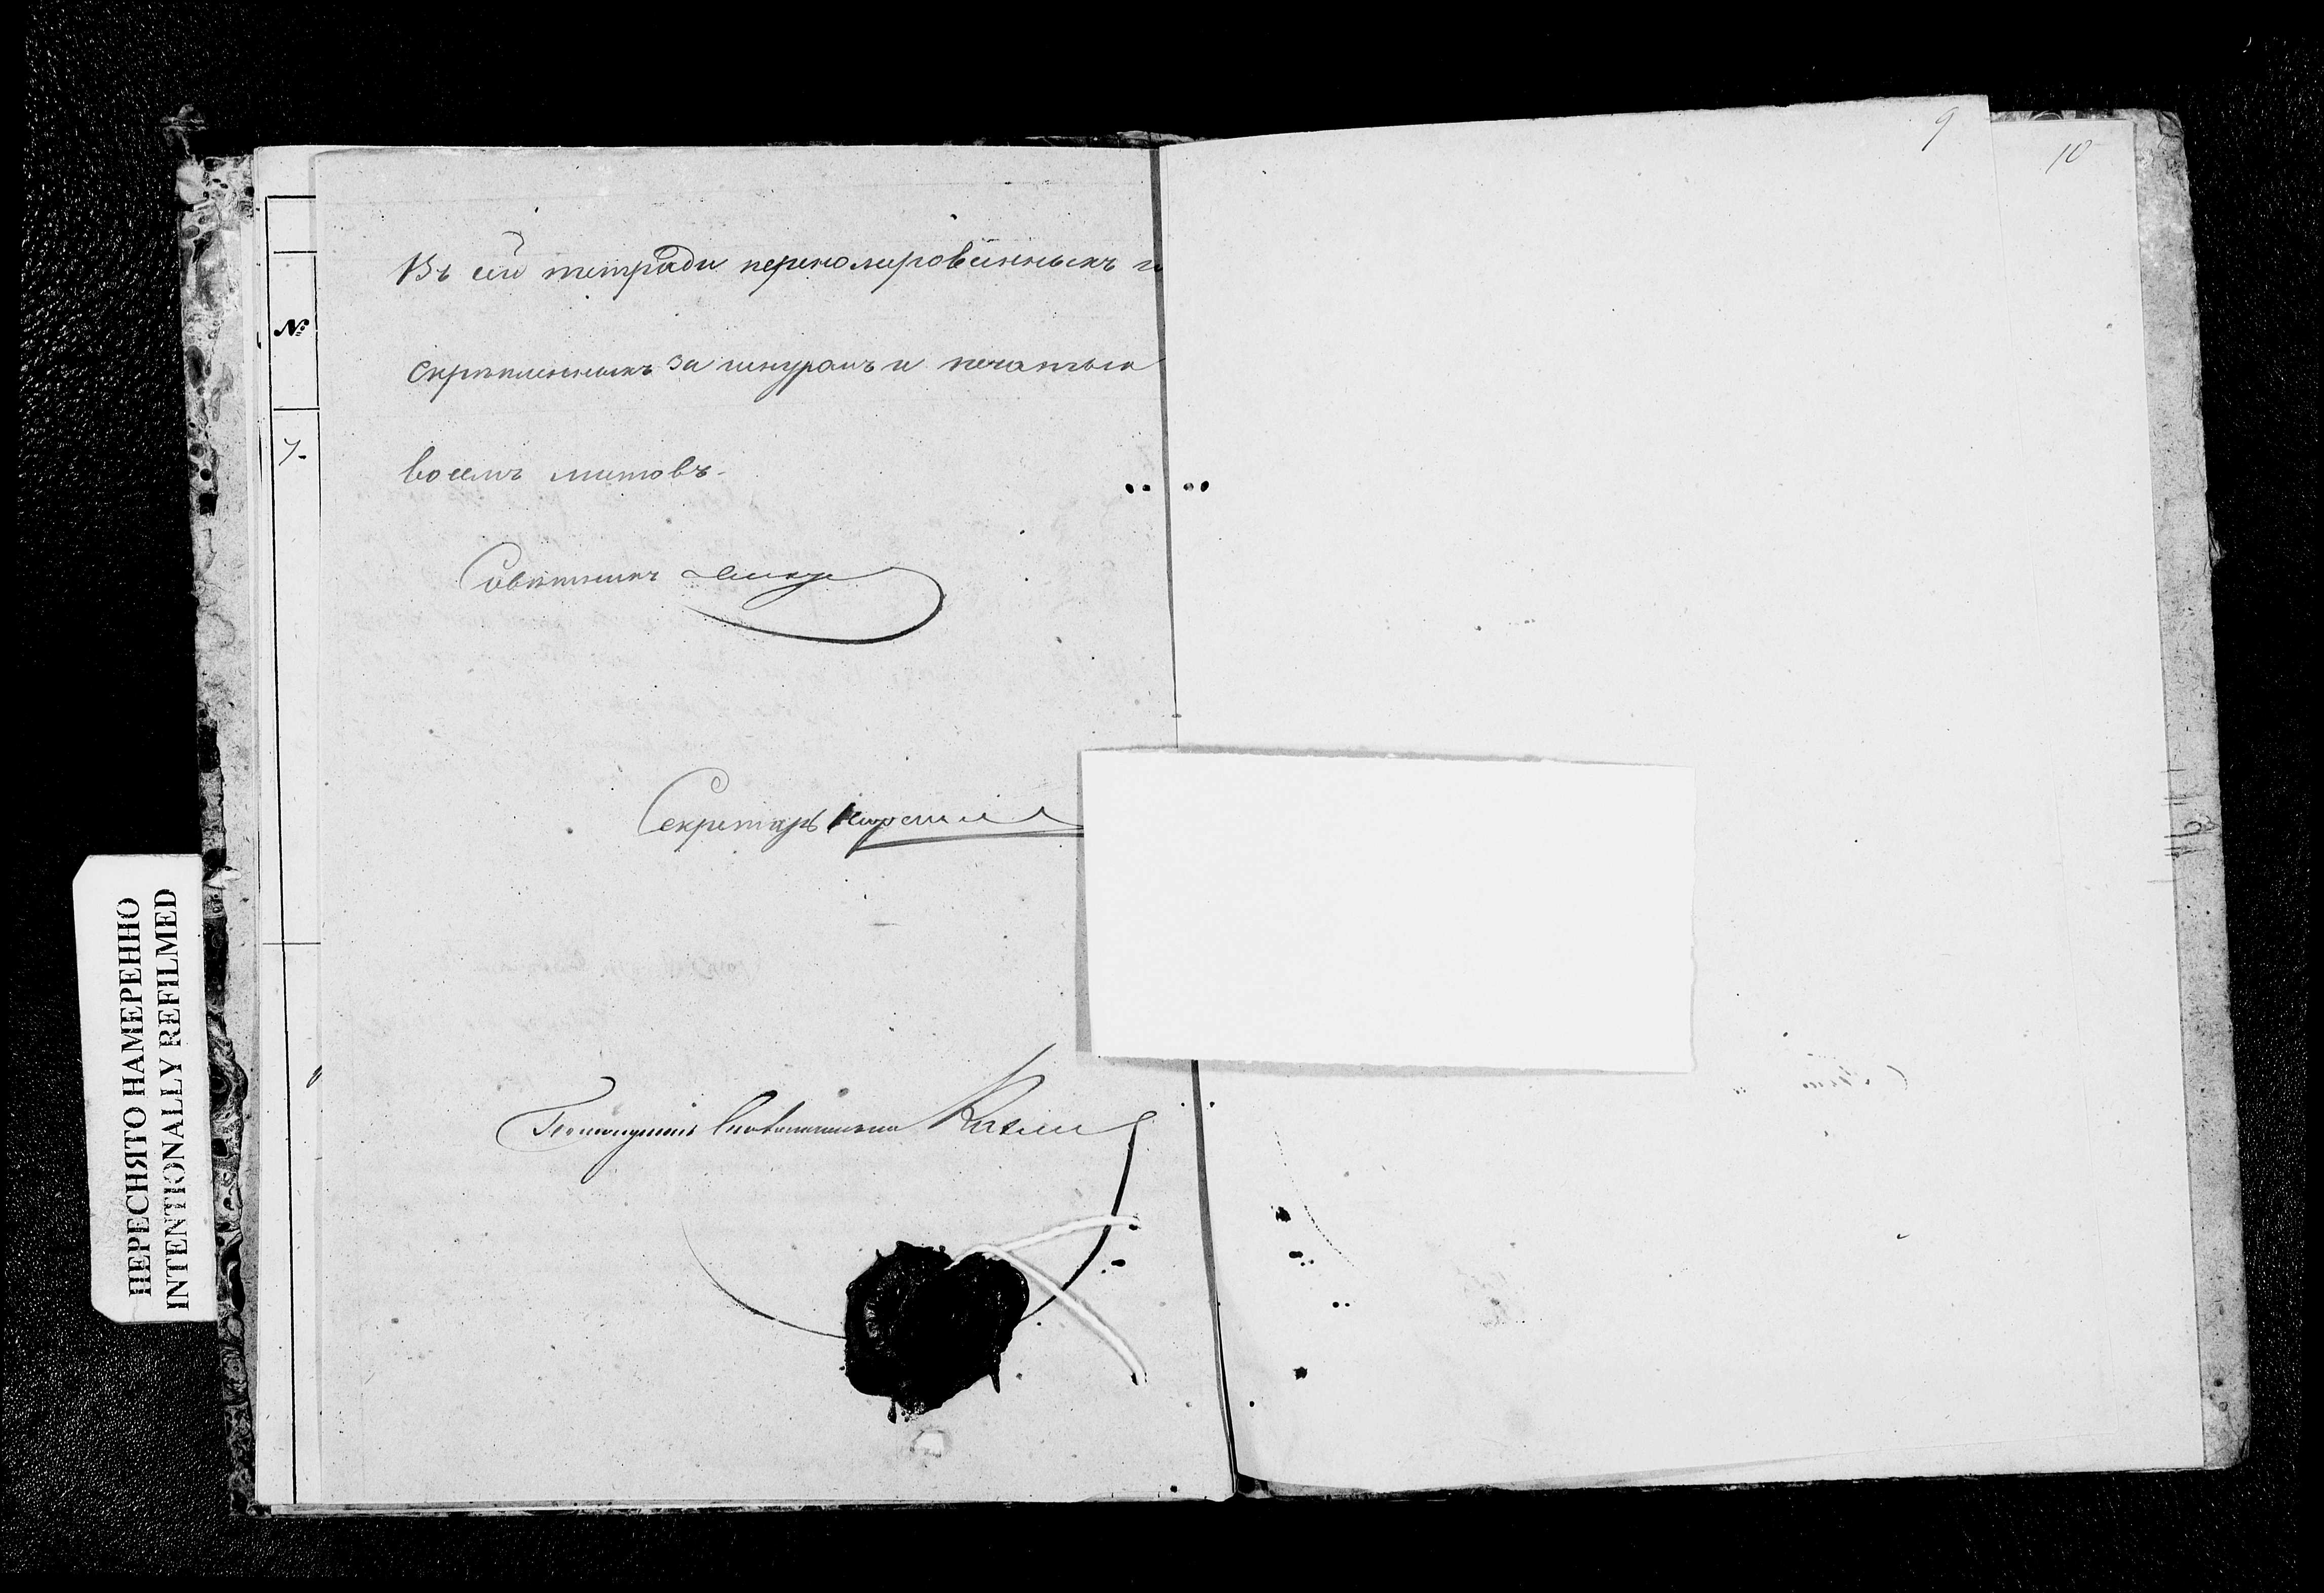 9
10
Въ сей тетради перенолированныхъ и
№
скрѣпленныхъ за шнуромъ и печатью
7.
восемь листовъ.
Совѣтникъ
Секретарь
Помощникъ Столоначальника
ПЕРЕСНЯТО НАМЕРЕННО
INTENTIONALLY REFILMED